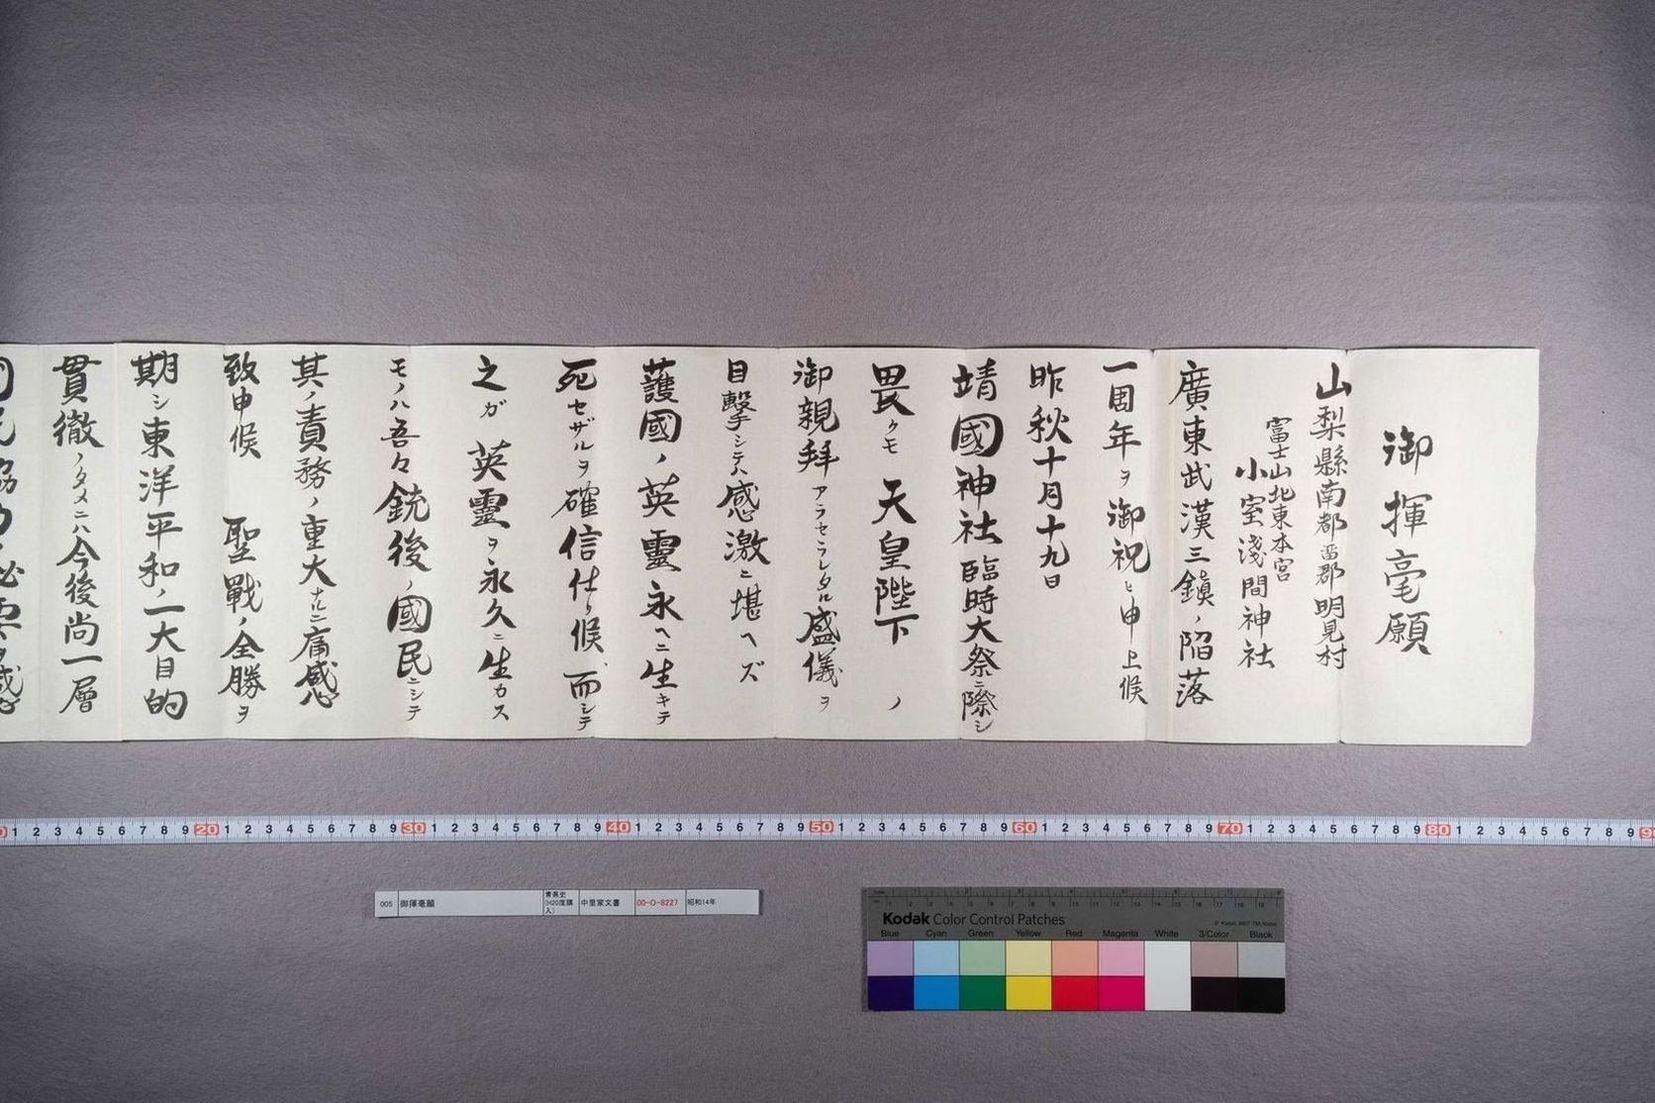 御揮毫願
山梨縣南都留郡明見村
富士山北東本宮
小室淺間神社
廣東武漢三鎭ノ陥落
一周年ヲ御祝ヒ申上候
昨秋十月十九日
靖國神社臨時大祭ニ際シ
畏クモ 天皇陛下ノ
御親拜アラセラレタル盛儀ヲ
目擊シテハ感激ニ堪ヘズ
護國ノ英靈永ヘニ生キテ
死セザルヲ確信仕リ候 而シテ
之ガ 英靈ヲ永久ニ生カス
モノハ吾々銃後ノ國民ニシテ
其ノ責務ノ重大ナルニ痛感
致申候 聖戰ノ全勝ヲ
期シ東洋平和ノ一大目的
貫徹ノタメニハ今後尚一層
國民協力ノ必要ヲ感
0 1 2 3 4 5 6 7 8 9 20 1 2 3 4 5 6 7 8 9 30 1 2 3 4 5 6 7 8 9 40 1 2 3 4 5 6 7 8 9 50 1 2 3 4 5 6 7 8 9 60 1 2 3 4 5 6 7 8 9 70 1 2 3 4 5 6 7 8 9 80 1 2 3 4 5 6 7 8 9 90
005 御揮毫願 貴長史(H20度購入) 中里家文書 00-O-8227 昭和14年
Kodak Color Control Patches
Blue Cyan Green Yellow Red Magenta White 3/Color Black